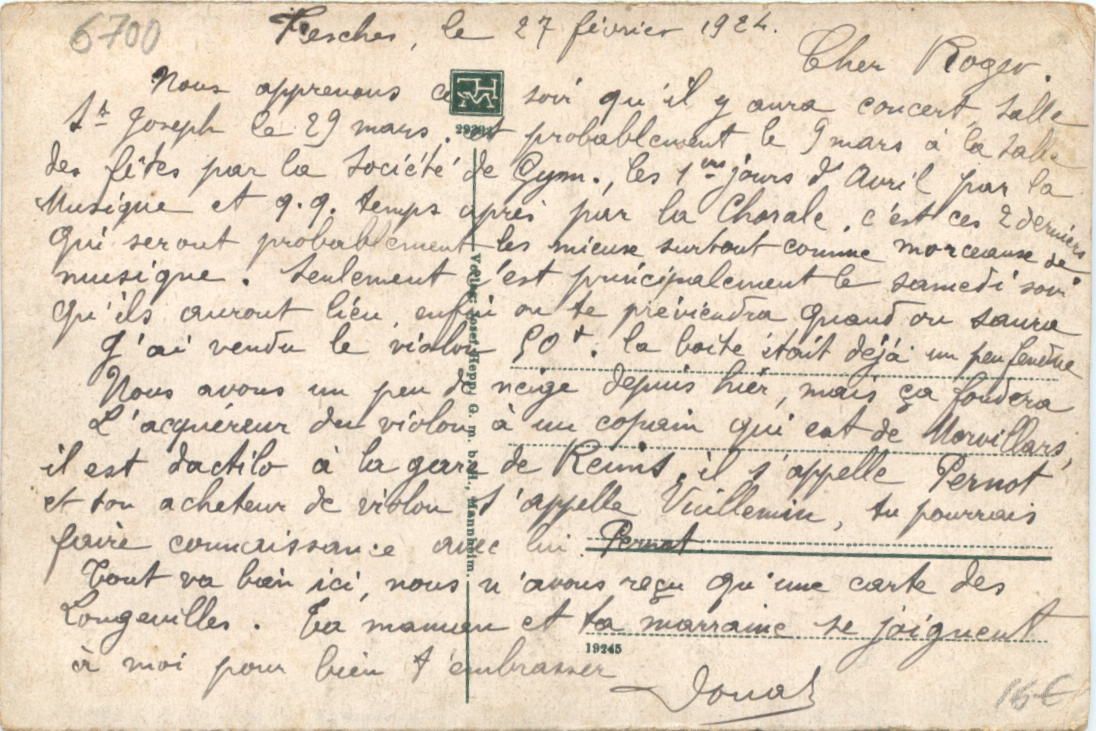 6700
Fesches, le 27 février 1924.
Cher Roger.
Nous apprenons ce soir qu'il y aura concert, Salle
St Joseph le 29 mars. et probablement le 9 mars à la Salle
des fêtes par la Société de Gym., les 1ers jours d'Avril par la
Musique et q.q. temps après par la Chorale, c'est ces 2 derniers
qui seront probablement les mieux surtout comme morceaux de
musique. Seulement c'est principalement le samedi soir
qu'ils auront lieu, enfin on te préviendra quand on saura
J'ai vendu le violon 50f. la boite était déjà un peu fendue
Nous avons un peu de neige depuis hier, mais ça fondera
L'acquéreur du violon à un copain qui est de Morvillars,
il est dactilo à la gare de il s'appelle Pernot
et ton acheteur de violon s'appelle Vuillemin, tu pourrais
faire connaissance avec lui Pernot.
Tout va bien ici, nous n'avons reçu qu'une carte des
Longevilles. Ta maman et ta marraine se joignent
à moi pour bien t'embrasser
19245
16 €
Verlag Josef Hepp, G. m. b. H., Mannheim.